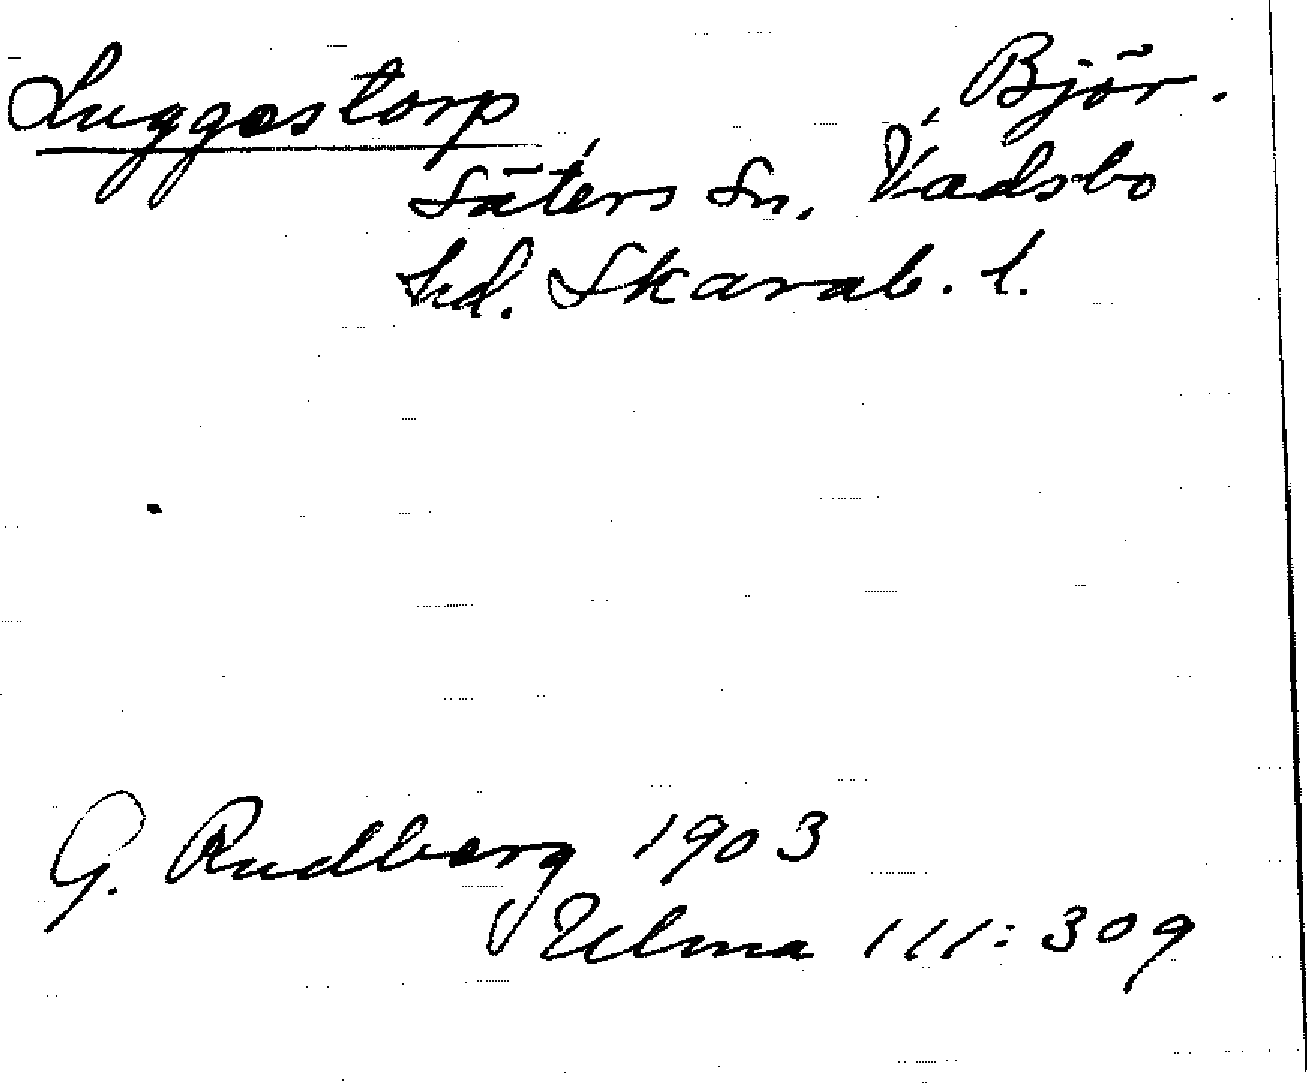 Luggestorp
Björ-
Säters Sn, Vadsbo
hd. Skarab. l.
G. Rudberg 1903
Ulma 111:309